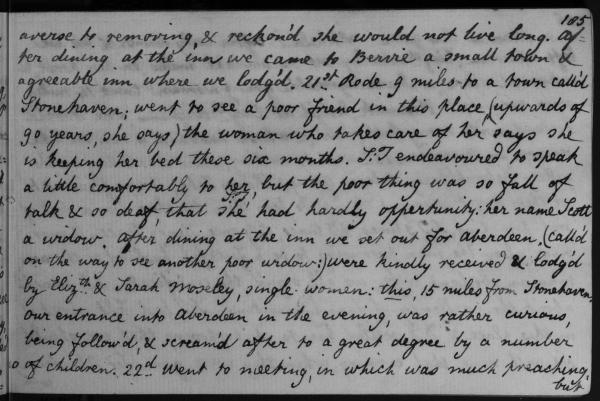 185
averse to removing, & reckon'd she would not live long. af=
ter dining at the inn we came to Bervie a small town &
agreeable inn where we lodg'd. 21st Rode 9 miles to a town call'd
Stonehaven; went to see a poor friend in this place, (upwards of
90 years, she says) the woman who takes care of her says she
is keeping her bed these six months. S:T endeavoured to speak
a little comfortably to her, but the poor thing was so full of
talk & so deaf, that she had hardly oppertunity: her name Scott
a widow. After dining at the inn we set out for Aberdeen, (call'd
on the way to see another poor widow:) were kindly received & lodg'd
by Elizth & Sarah Moseley, single women: this, 15 miles from Stonehaven.
our entrance into Aberdeen in the evening, was rather curious,
being follow'd, & scream'd after to a great degree by a number
of children. 22d went to meeting, in which was much preaching,
but